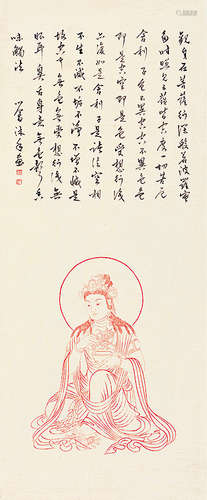 觀自在菩薩行深般若波羅蜜
多時照見五蘊皆空度一切苦厄
舍利子色不異空空不異色色
即是空空即是色受想行識
亦復如是舍利子是諸法空相
不生不滅不垢不淨不增不減
是故空中無色無受想行識無
眼耳鼻舌身意無色聲香
味觸法
心畬沐手畫